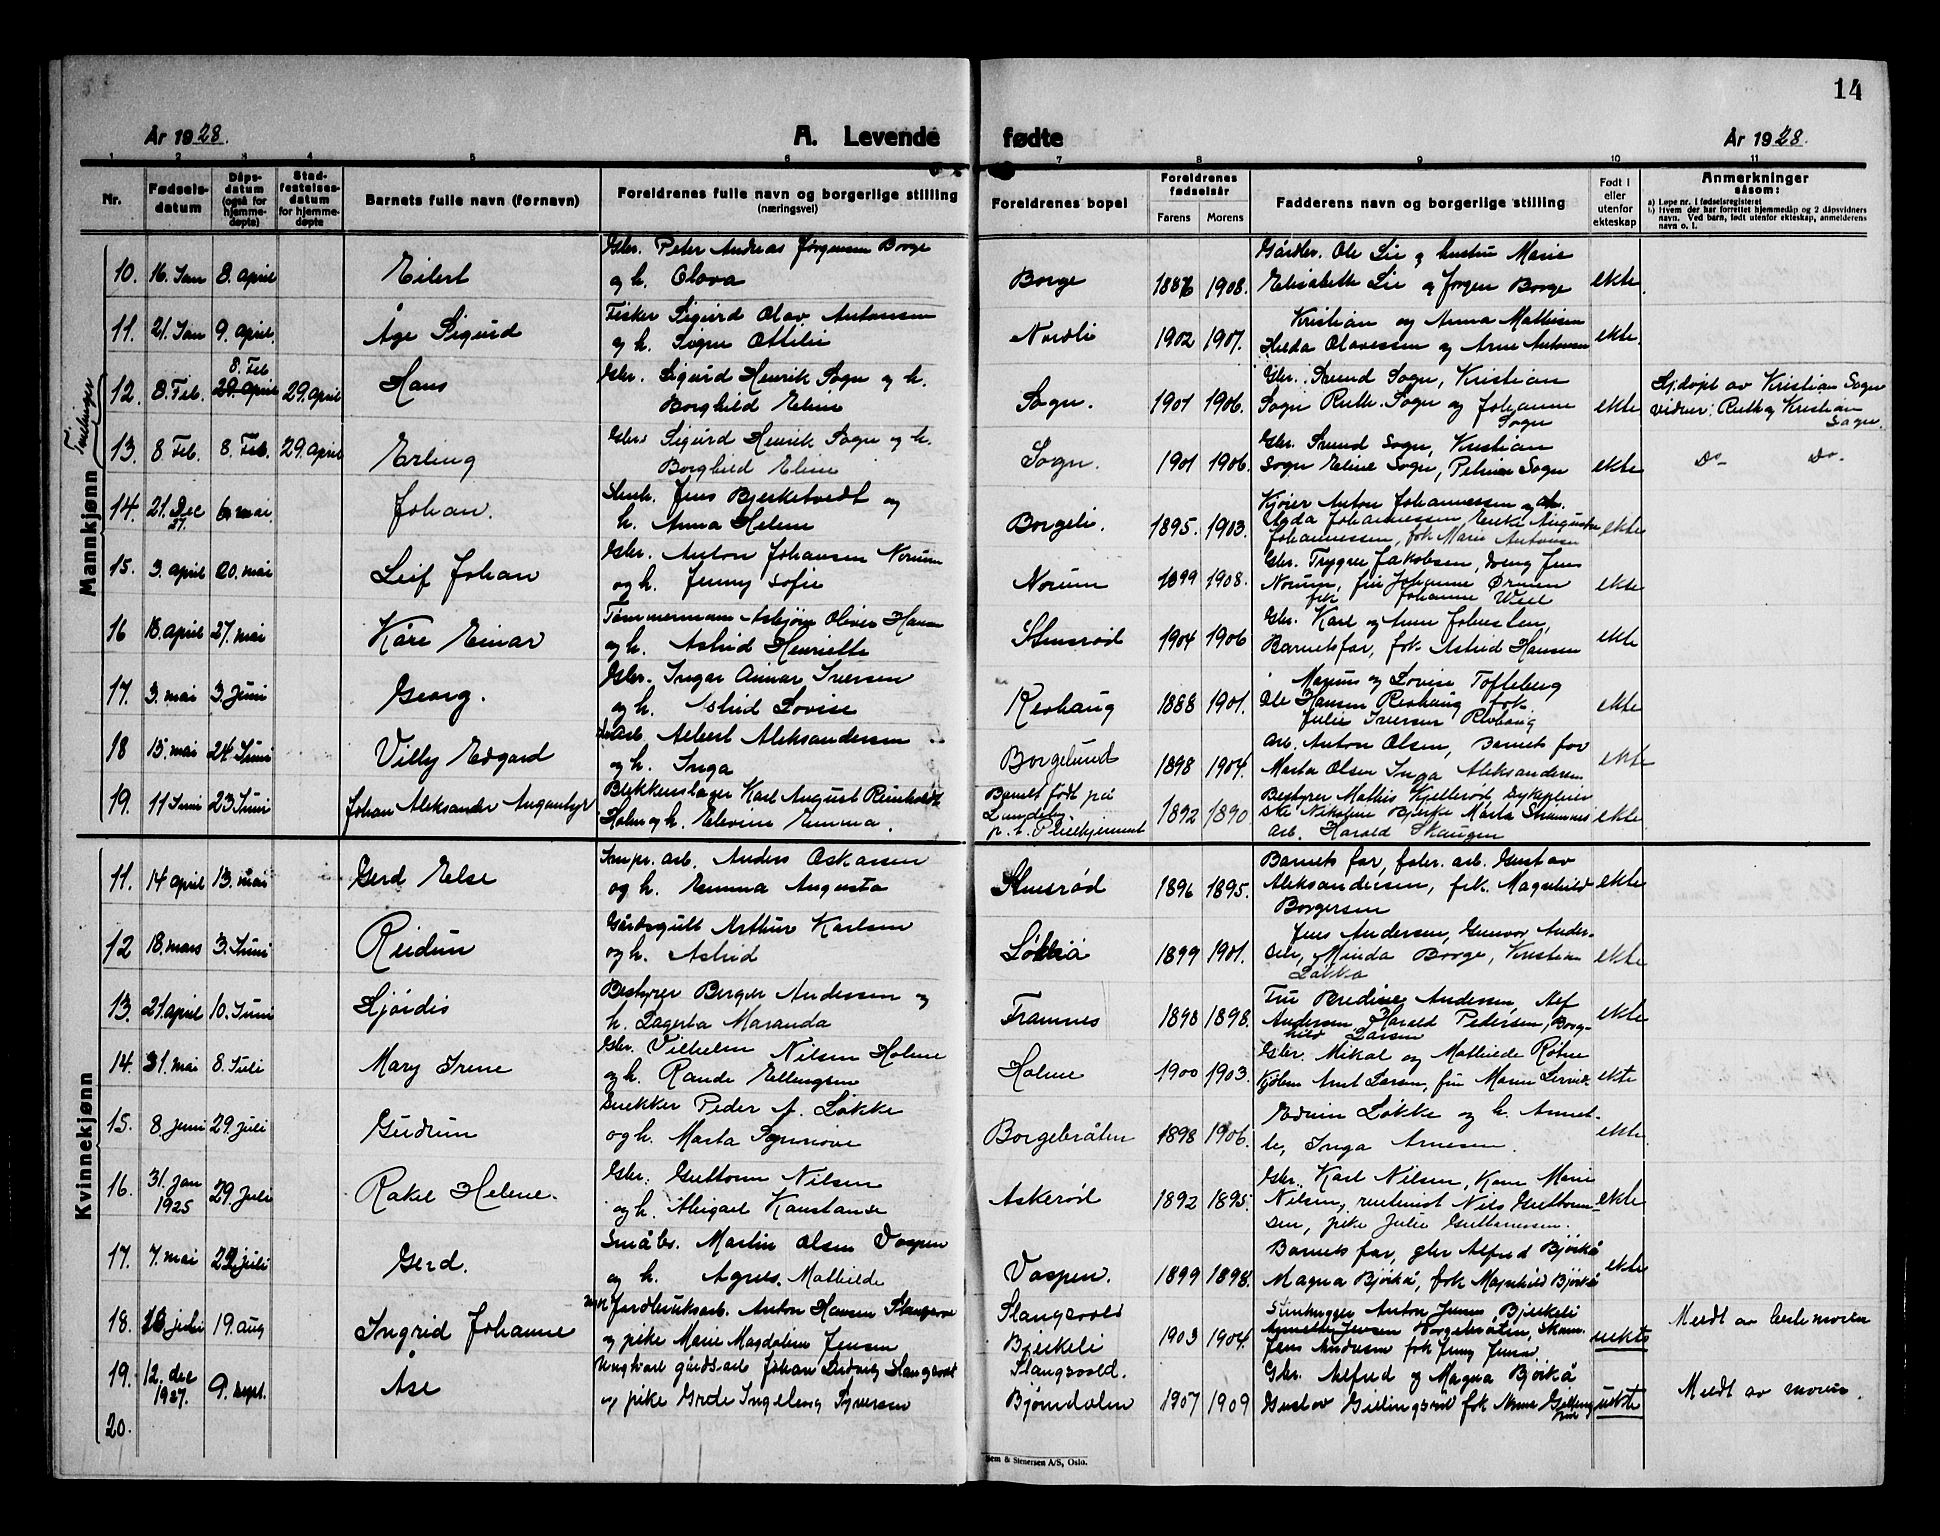 14
År 1928.
A. Levende fødte
År 1928.
1 2 3 4 5 6 7 8 9 10 11
Nr.
Fødsels-
datum
Dåps-
datum
(også for
hjemme-
døpte)
Stad-
festelses-
datum
for hjemme-
døpte
Barnets fulle navn (fornavn)
Foreldrenes fulle navn og borgerlige stilling
(næringsvei)
Foreldrenes bopel
Foreldrenes
fødselsår
Farens Morens
Fadderens navn og borgerlige stilling
Født i
eller
utenfor
ekteskap
Anmerkninger
såsom:
a) Løpe nr. i fødselsregisteret
b) Hvem der har forrettet hjemmedåp og 2 dåpsvidners
navn. Ved barn, født utenfor ekteskap, anmelderens
navn o. l.
Mannkjønn
Tvillinger
10. 16. Jan 8. april Eilert
Gbr. Peter Andreas Jørgensen Borge
og h. Olova
Borge 1886 1908.
Gårdbr. Ole Lie og hustru Marie
Elisabeth Lie og Jørgen Borge
ekte
11. 21. Jan 9. april. Åge Sigurd
Fisker Sigurd Olav Antonsen
og h. Signe Ottilie
Nordli 1902 1907.
Kristian og Anna Mathisen
Hilda Olavessen og Arne Antonsen
ekte.
8. Feb
12. 8. Feb. 29. april 29. april Hans
Gbr. Sigurd Henrik Sogn og h.
Borghild Eline
Sogn. 1901 1906.
Gbr. Svend Sogn, Kristian
Sogn Ruth Sogn og Johanne
Sogn
ekte
Hj.døpt av Kristian Sogn
vidner: Ruth og Kristian
Sogn.
13. 8 Feb. 8. Feb. 29. april Erling
Gbr. Sigurd Henrik Sogn og h.
Borghild Eline
Sogn. 1901 1906.
Gbr. Svend Sogn, Kristian
Sogn Eline Sogn, Petrine Sogn
ekte
Do Do.
14. 21. Dec 27. 6 mai. Johan.
Stenh. Jens Bjerketvedt og
h. Anna Helene
Borgeli. 1895. 1903.
Kjører Anton Johannessen og h.
Johannessen, Augusta
Johannessen, frk Marie Antonsen
ekte
15. 3. april 20. mai Leif Johan
Gbr. Anton Johansen Norum
og h. Jenny Sofie
Norum 1899 1908.
Gbr. Trygve Jakobsen, Jens
Norum, fru Johanne
frk Johanne
ekte
16 15. april 27. mai Kåre Einar
Tømmermann Asbjørn Oliver Hansen
og h. Astrid Henriette
Stusrød 1904 1906
Gbr. Karl og Anna Johnsen,
Barnets far, frk. Astrid Hansen
ekte
17. 3. mai 3. Juni Georg.
Gbr. Ingar Ainar Iversen
og h. Astrid Lovise
Revhaug 1888 1901.
Magnus og Lovise Tofteberg
Ole Hansen Revhaug frk.
Julie Iversen Revhaug
ekte
18 15. mai 24 Juni Villy Edgard
arb. Albert Aleksandersen
og h. Inga
Borgelund 1898 1904.
Arb. Anton Olsen, Barnets far
Marta Olsen Inga Aleksandersen
ekte
19. 11 Juni 23 Juni Johan Aleksander Angantyr
Blikkenslager Karl August Reinholdt
Holm og h. Elevine Emma.
Barnet født på
Lundeby
p. t. Pleiehjemmet
1892 1890
Bestyrer Mathis Kjellerød Sykepleier
Nikoline Bjerke Marta
arb. Harald Skaugen
ekte
Kvinnekjønn
11. 14 april 13. mai Gerd Else
arb. Anders Oskarsen
og h. Emma Augusta
Stusrød 1896 1895.
Barnets far, arb. Gustav
Aleksandersen, frk. Magnhild
Borgersen
ekte
12 18. mars 3. Juni Reidun
Gårdsgutt Arthur Karlsen
og h. Astrid
Løkka 1899 1901.
Jens Andersen, Gunvor Ander-
sen, Minda Borge, Kristian
Løkka
ekte
13. 21. april 10. Juni Hjørdis
Bestyrer Berger Andersen og
h. Lagerta Maranda
Framnes 1898 1898.
Fru Bredine Andersen, Alf
Andersen Harald Pedersen, Borg-
hild Larsen
ekte
14. 31. mai 8. Juli Mary Irene
Gbr. Vilhelm Nilsen Holene
og h. Rande Ellingsen
Holene 1900 1903.
Gbr. Mikal og Mathilde
Arnt Larsen, fru
ekte
15. 8. Juni 29. juli Gudrun
Snekker Peder A. Løkke
og h. Marta Synnøve
Borgebråten 1898 1906.
Edvin Løkke og h. Annet-
te, Inga Arnesen.
ekte
16. 31. Jan 1925 29 Juli Rakel Helene.
Gbr. Guttorm Nilsen
og h. Abigael Konstanse
Askerød 1892 1895.
Gbr. Karl Nilsen, Karen Marie
Nilsen, Nils Guttorm-
sen, pike Julie Guttormsen.
ekte
17. 7. mai 29. juli Gerd.
Småbr. Martin Olsen Vaspen
og h. Agnes Mathilde
Vaspen. 1899 1898.
Barnets far, gbr Alfred Bjørkå
Magna Bjørkå, frk Magnhild Bjørkå
ekte
18. juli 19. aug Ingrid Johanne
Jordbruksarb. Anton Hansen Slangsvold
og pike Marie Magdalene Jensen
Slangsvold
Bjerkeli
1903 1904.
Stenhugger Anton Jensen Bjerkeli
Jensen Borgebråten,
Jens Andersen frk Jenny Jensen
uekte
Meldt av bestemoren
19. 12. dec 1927. 9. sept. Åse
Ungkarl gårdsarb Johan Ludvig Slangsvold
og pike Grete Ingeborg Syversen
Slangsvold.
Bjørndalen 1907 1909
Gbr. Alfred og Magna Bjørkå
Gustav frk Anna
uekte
Meldt av moren.
20.
Sem & Stenersen A/S, Oslo.